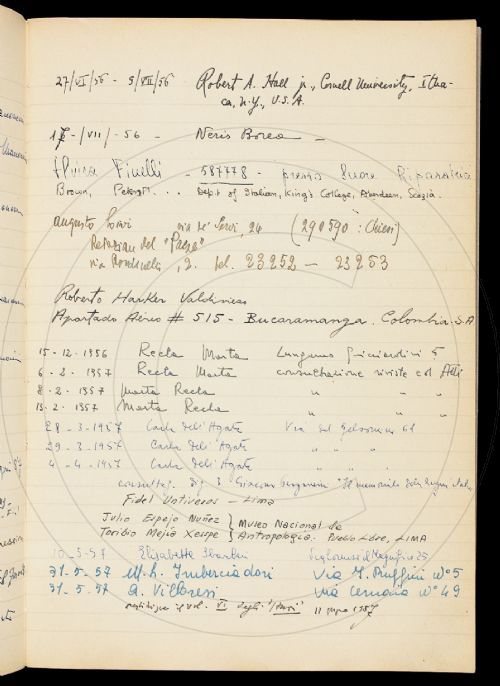 27/VI/56 - 5/VII/56 Robert A. Hall jr., Cornell University, Itha-
ca, N.Y., U.S.A.
17-/VII/-56 - Neris Borea —
Elvira Pinelli - 587778 - presso Suore Riparatrici
Brown, Peter . . . Dept. of Italian, King's College, Aberdeen, Scozia.
Augusto via de' Servi, 24 (290590: Chiesi)
Redazione del "Paese"
via Rondinelli, 2. tel. 23252 — 23253
Roberto Harker Valdivieso
Apartado Aéreo # 515 - Bucaramanga. Colombia. S.A
15-12-1956 Recla Marta Lungarno Guicciardini 5
6-2-1957 Recla Marta consultazione riviste col Alli
8-2-1957 Marta Recla " " "
13-2-1957 Marta Recla " " "
28-3-1957 Carla Dell'Agata Via del Gelsomino 61
29-3-1957 Carla Dell'Agata " " "
4-4-1957 Carla Dell'Agata " " "
Giacomo "Il memoriale della lingua
Fidel Votiveros - Lima
Julio Espejo Nuñez } Museo Nacional de
Toribio Mejía Xesspe } Antropología. Pueblo Libre, LIMA
10-5-57 Elisabetta il Magnifico 25
31-5-57 M. h. Imberciadori Via G. Ruffini n° 5
31-5-57 A. Villoresi Via Cernaia n° 49
vol. VI degli 11 1957